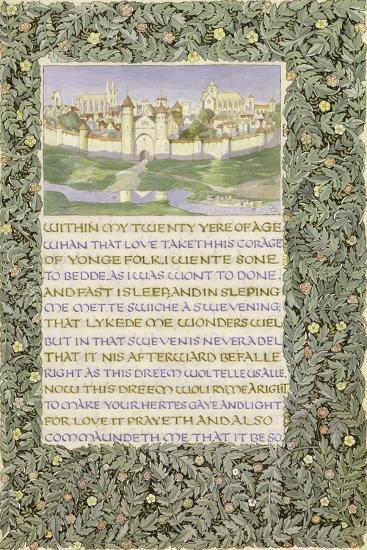 WITHIN MY TWENTY YERE OF AGE
WHAN THAT LOVE TAKETH HIS CORAGE
OF YONGE FOLK, I WENTE SONE
TO BEDDE, AS I WAS WONT TO DONE,
AND FAST I SLEEP, AND IN SLEPING
ME METTE SWICHE A SWEVENING,
THAT LYKEDE ME WONDERS WEL
BUT IN THAT SWEVEN IS NEVER A DEL
THAT IT NIS AFTERWARD BEFALLE
RIGHT AS THIS DREEM WOL TELLE US ALLE,
NOW THIS DREEM WOL I RYME ARIGHT,
TO MAKE YOUR HERTES GAYE AND LIGHT
FOR LOVE IT PRAYETH AND ALSO
COMMAUNDETH ME THAT IT BE SO